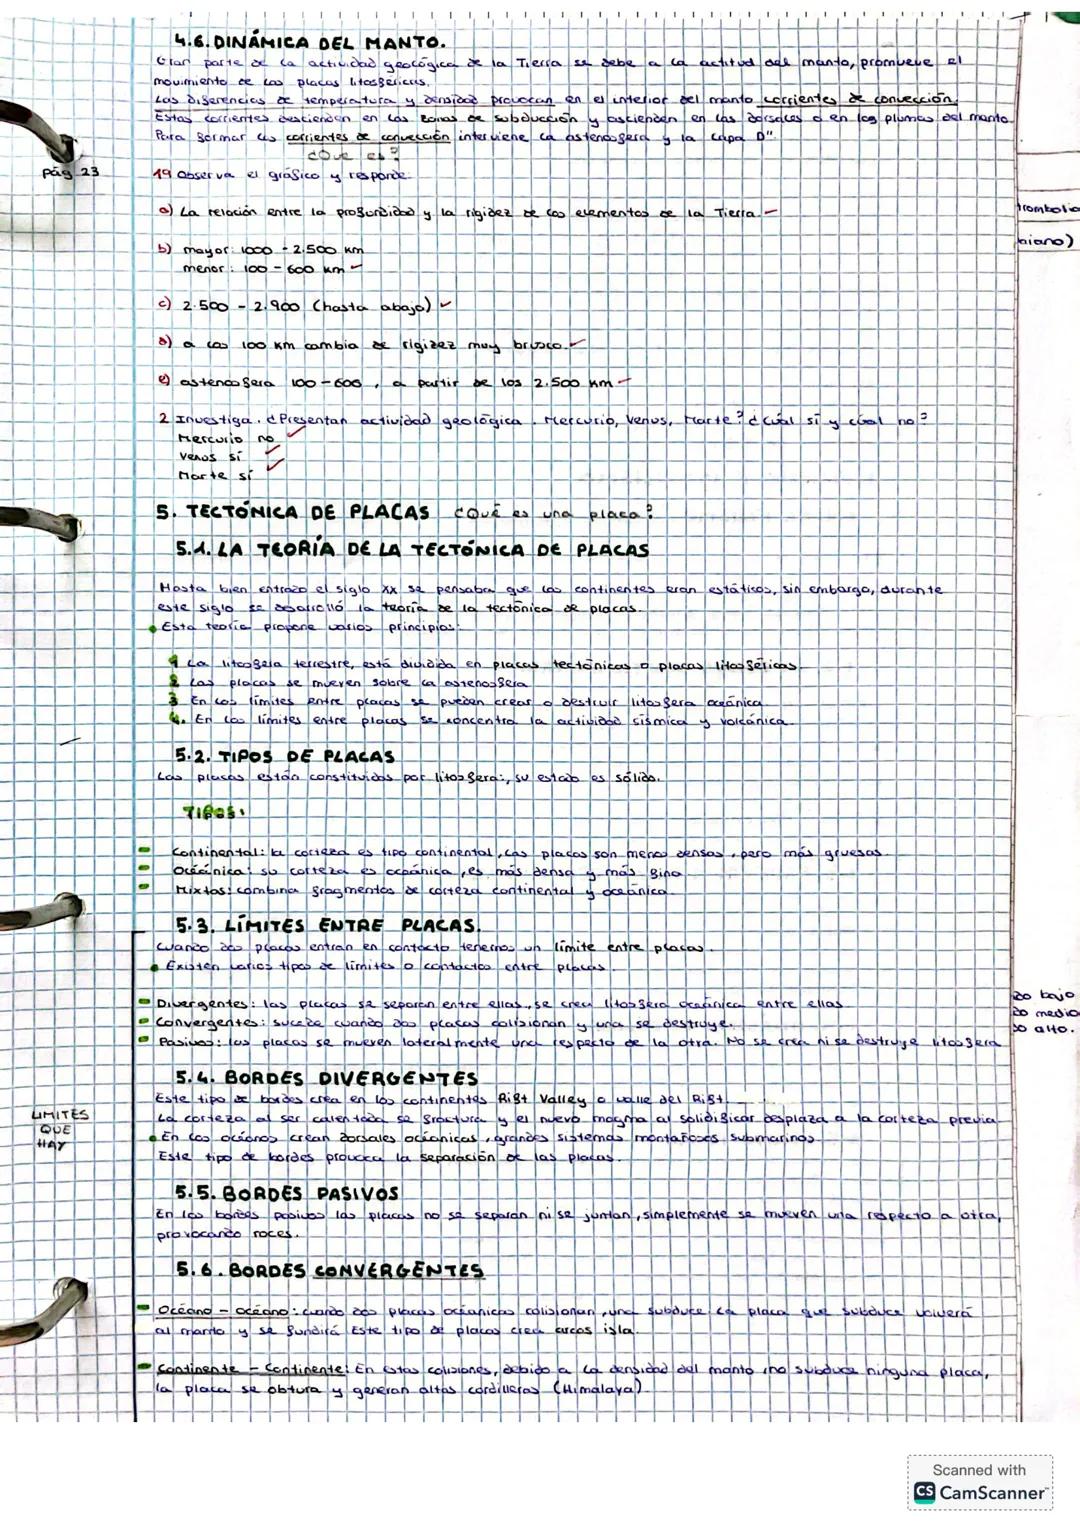 4.6. DINÁMICA DEL MANTO.
Gran parte de la actividad geológica de la Tierra se debe a la actitud del manto, promueve el
movimiento de las placas litosféricas.
Las diferencias de temperatura y densidad provocan en el interior del manto corrientes de convección.
Estas corrientes descienden en las zonas de subducción y ascienden en las dorsales o en las plumas del manto.
Para formar las corrientes de convección interviene la astenosfera y la capa D".
¿Qué es?
pág 23
19 Observa el gráfico y responde.
a) La relación entre la profundidad y la rigidez de los elementos de la Tierra.
trombolia
b) mayor: 1000 - 2.500 km
biano)
menor: 100 - 600 km
c) 2.500 - 2.900 (hasta abajo)
d) a los 100 km cambia de rigidez muy brusco.
e) astenosfera 100-600, a partir de los 2.500 km
2 Investiga. ¿Presentan actividad geológica. Mercurio, Venus, Marte? ¿cuál sí y cúal no?
Mercurio no
Venus sí
Marte sí
5. TECTÓNICA DE PLACAS ¿Qué es una placa?
5.1. LA TEORÍA DE LA TECTÓNICA DE PLACAS
Hasta bien entrado el siglo XX se pensaba que los continentes eran estáticos, sin embargo, durante
este siglo se desarrolló la teoría de la tectónica de placas.
Esta teoría propone varios principios:
1 La litosfera terrestre, está dividida en placas tectónicas o placas litosféricas.
2 Las placas se mueven sobre la astenosfera
3 En los límites entre placas se pueden crear o destruir litosfera oceánica
4. En los límites entre placas se concentra la actividad sísmica y volcánica.
5.2. TIPOS DE PLACAS
Las placas están constituidas por litosfera:, su estado es sólido.
TIPOS:
Continental: la corteza es tipo continental, las placas son menos densas, pero más gruesas.
Oceánica: su corteza es oceánica, es más densa y más fina
Mixtas: combina fragmentos de corteza continental y oceánica.
5.3. LÍMITES ENTRE PLACAS.
Cuando dos placas entran en contacto tenemos un límite entre placas.
Existen varios tipos de límites o contactos entre placas.
Divergentes: las placas se separan entre ellas, se crea litosfera oceánica entre ellas
do bajo
Convergentes: sucede cuando dos placas colisionan y una se destruye.
do medio
Pasivos: las placas se mueven lateralmente una respecto de la otra. No se crea ni se destruye litosfera
do alto.
5.4. BORDES DIVERGENTES
Este tipo de bordes crea en los continentes Rift Valley o valle del Rift.
LIMITES
QUE
HAY
La corteza al ser calentada se fractura y el nuevo magma al solidificar desplaza a la corteza previa
En los océanos crean dorsales océanicas, grandes sistemas montañosos submarinos
Este tipo de bordes provoca la separación de las placas.
5.5. BORDES PASIVOS
En los bordes pasivos las placas no se separan ni se juntan, simplemente se mueven una respecto a otra,
provocando roces.
5.6. BORDES CONVERGENTES
Océano - océano: cuando dos placas océanicas colisionan, una subduce. La placa que subduce volverá
al manto y se fundirá Este tipo de placas crea arcos isla.
Continente - Continente: En estas colisiones, debido a la densidad del manto no subduce ninguna placa,
la placa se obtura y generan altas cordilleras (Himalaya)
Scanned with
CS CamScanner